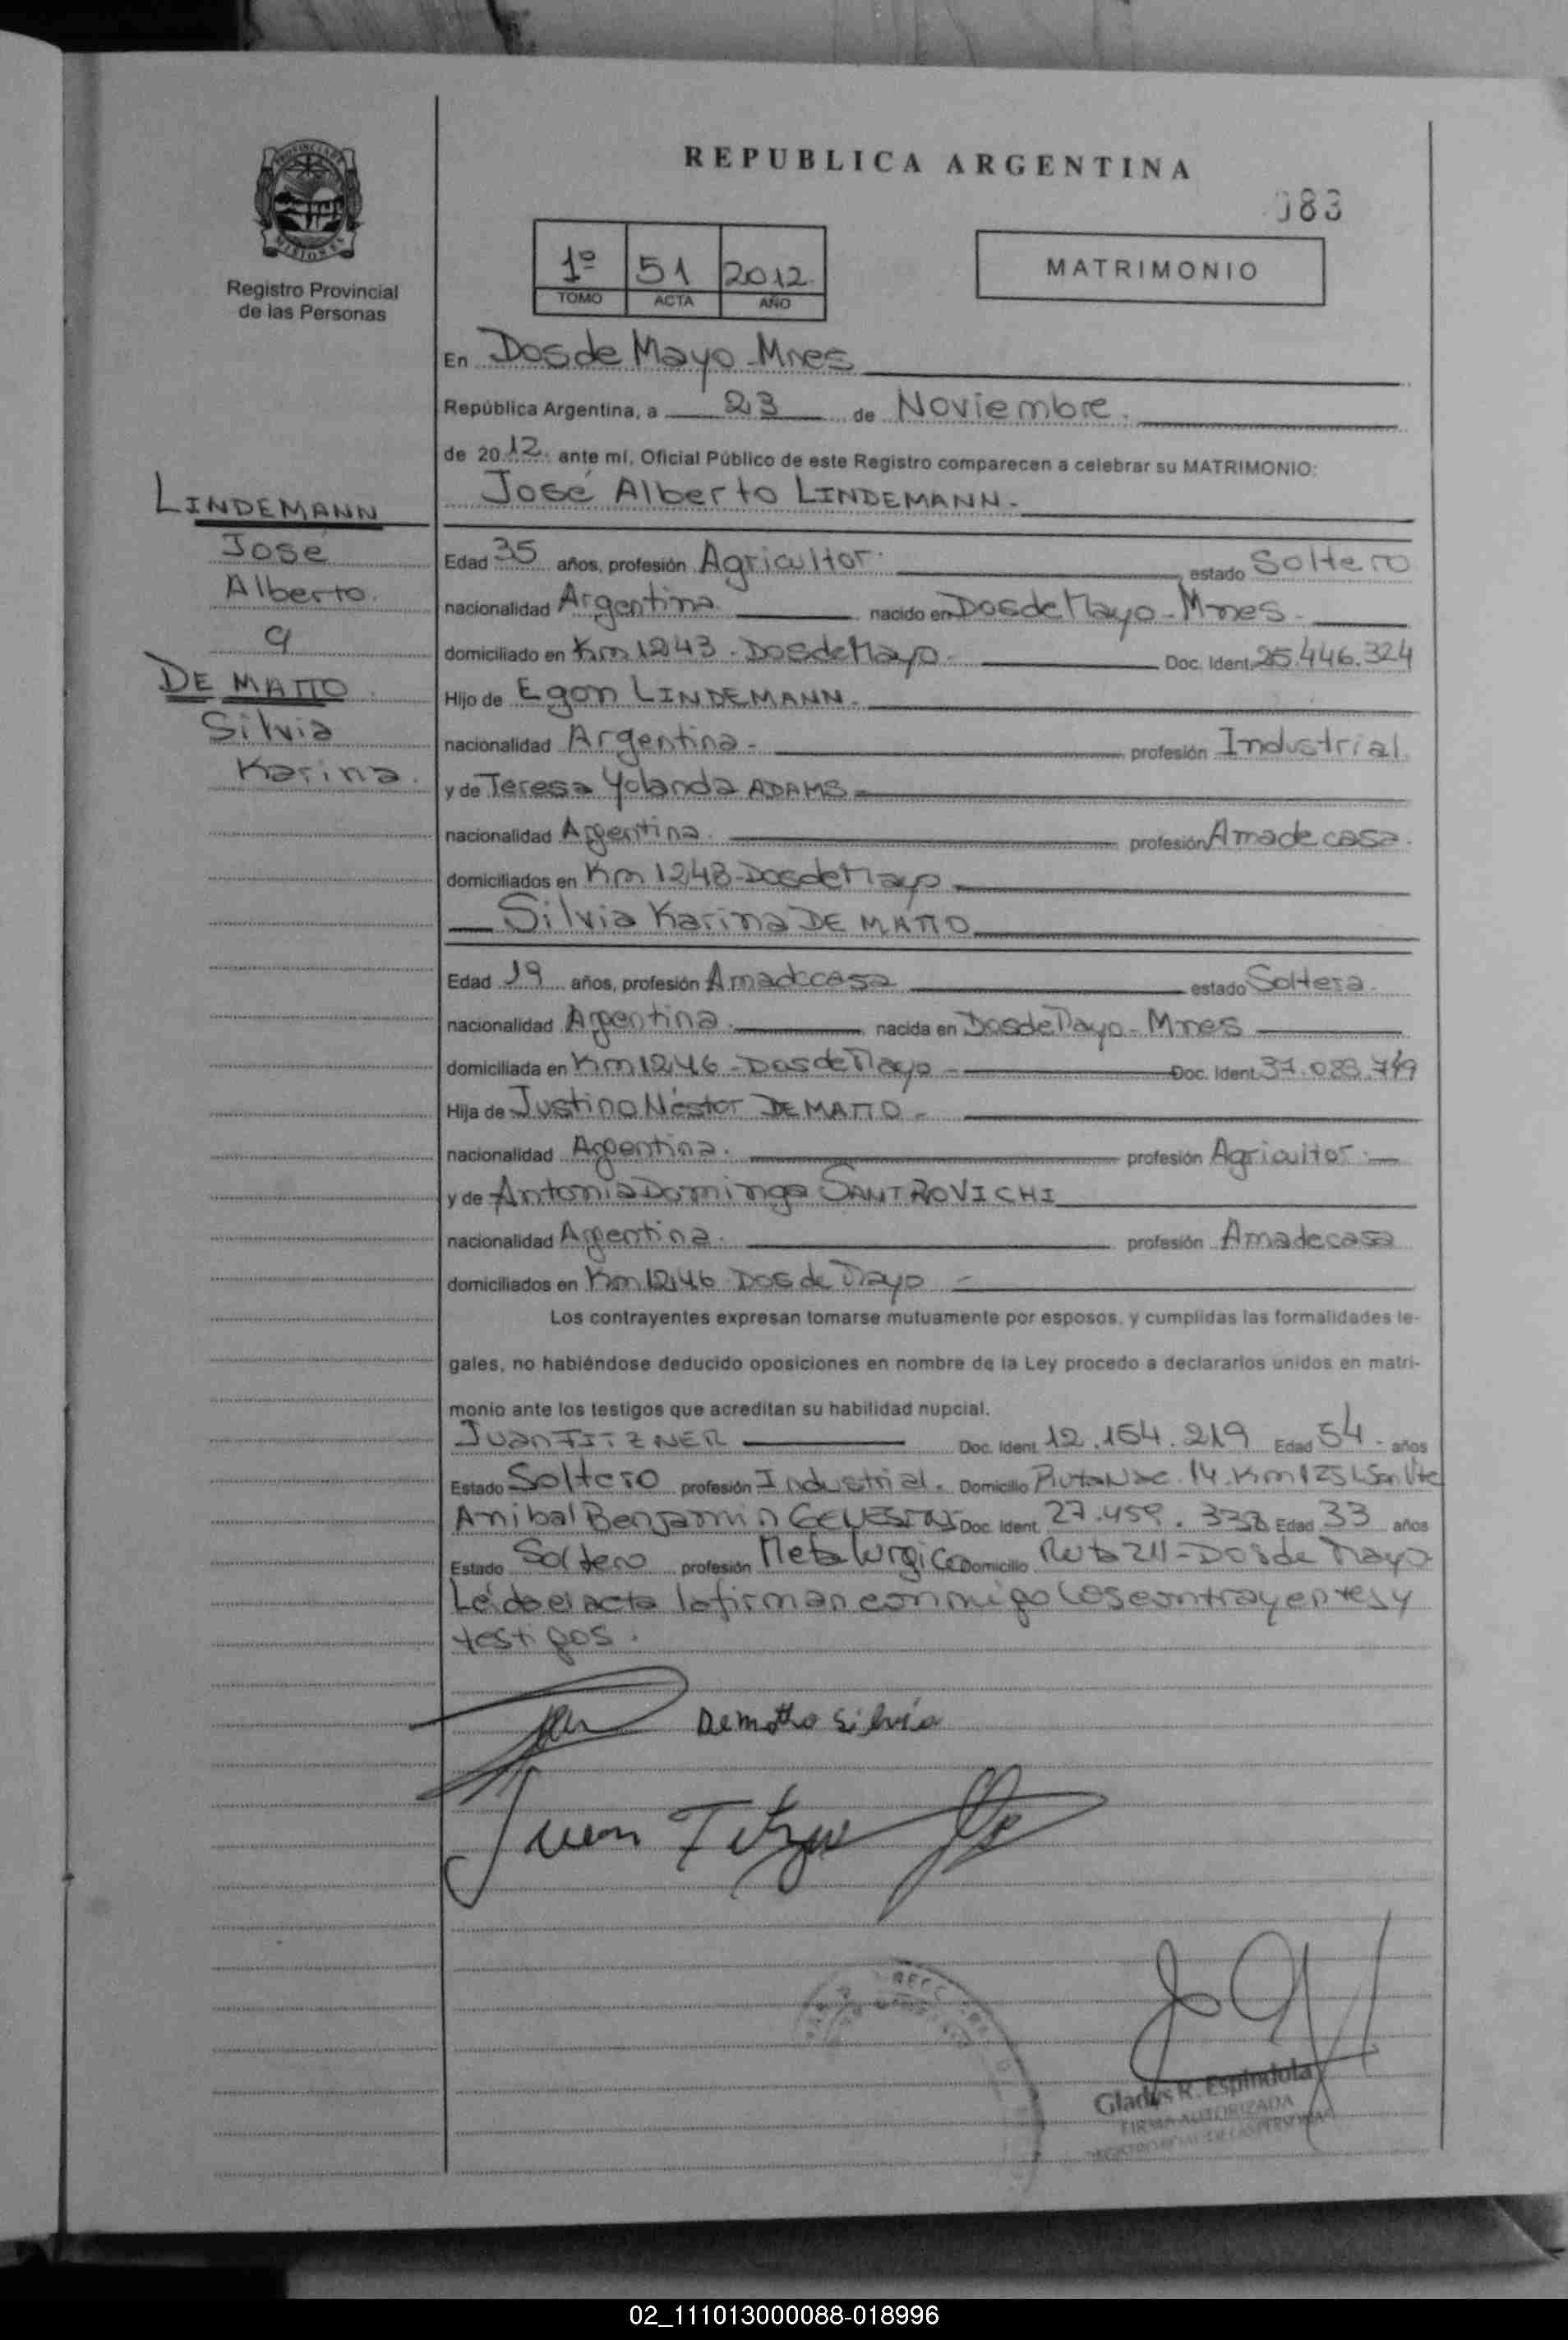 REPUBLICA ARGENTINA
083
PROVINCIA DE MISIONES
Registro Provincial
de las Personas
1º 51 2012
TOMO ACTA AÑO
MATRIMONIO
En Dos de Mayo - Mnes
República Argentina, a 23 de Noviembre.
de 2012 ante mí, Oficial Público de este Registro comparecen a celebrar su MATRIMONIO:
José Alberto LINDEMANN -
LINDEMANN
José
Alberto.
q
DE MATTO.
Silvia
Karina.
Edad 35 años, profesión Agricultor. estado Soltero
nacionalidad Argentina nacido en Dos de Mayo - Mnes -
domiciliado en Km 1243 - Dos de Mayo - Doc. Ident. 25.446.324
Hijo de Egon LINDEMANN -
nacionalidad Argentina - profesión Industrial
y de Teresa Yolanda ADAMS
nacionalidad Argentina. profesión Ama de casa.
domiciliados en Km 1243 - Dos de Mayo
Silvia Karina DE MATTO
Edad 19 años, profesión Ama de casa estado Soltera.
nacionalidad Argentina. nacida en Dos de Mayo - Mnes
domiciliada en Km 1246 - Dos de Mayo - Doc. Ident. 37.083.749
Hija de Justino Néstor DE MATTO -
nacionalidad Argentina. profesión Agricultor.
y de Antonia Dominga SANTROVICHI
nacionalidad Argentina. profesión Ama de casa
domiciliados en Km 1246 Dos de Mayo -
Los contrayentes expresan tomarse mutuamente por esposos, y cumplidas las formalidades le-
gales, no habiéndose deducido oposiciones en nombre de la Ley procedo a declararlos unidos en matri-
monio ante los testigos que acreditan su habilidad nupcial.
Juan FITZNER Doc. Ident. 12.154.219 Edad 54 - años
Estado Soltero profesión Industrial. Domicilio Ruta Nac. 14. Km 1251 San Vte
Anibal Benjamin Doc. Ident. 27.459.338 Edad 33 años
Estado Soltero profesión Metalurgico Domicilio Ruta 211 - Dos de Mayo
Leída el acta la firman conmigo los contrayentes y
testigos.
Dematto Silvia
Juan Fitzner
Gladys R. Espindola
FIRMA AUTORIZADA
02_111013000088-018996